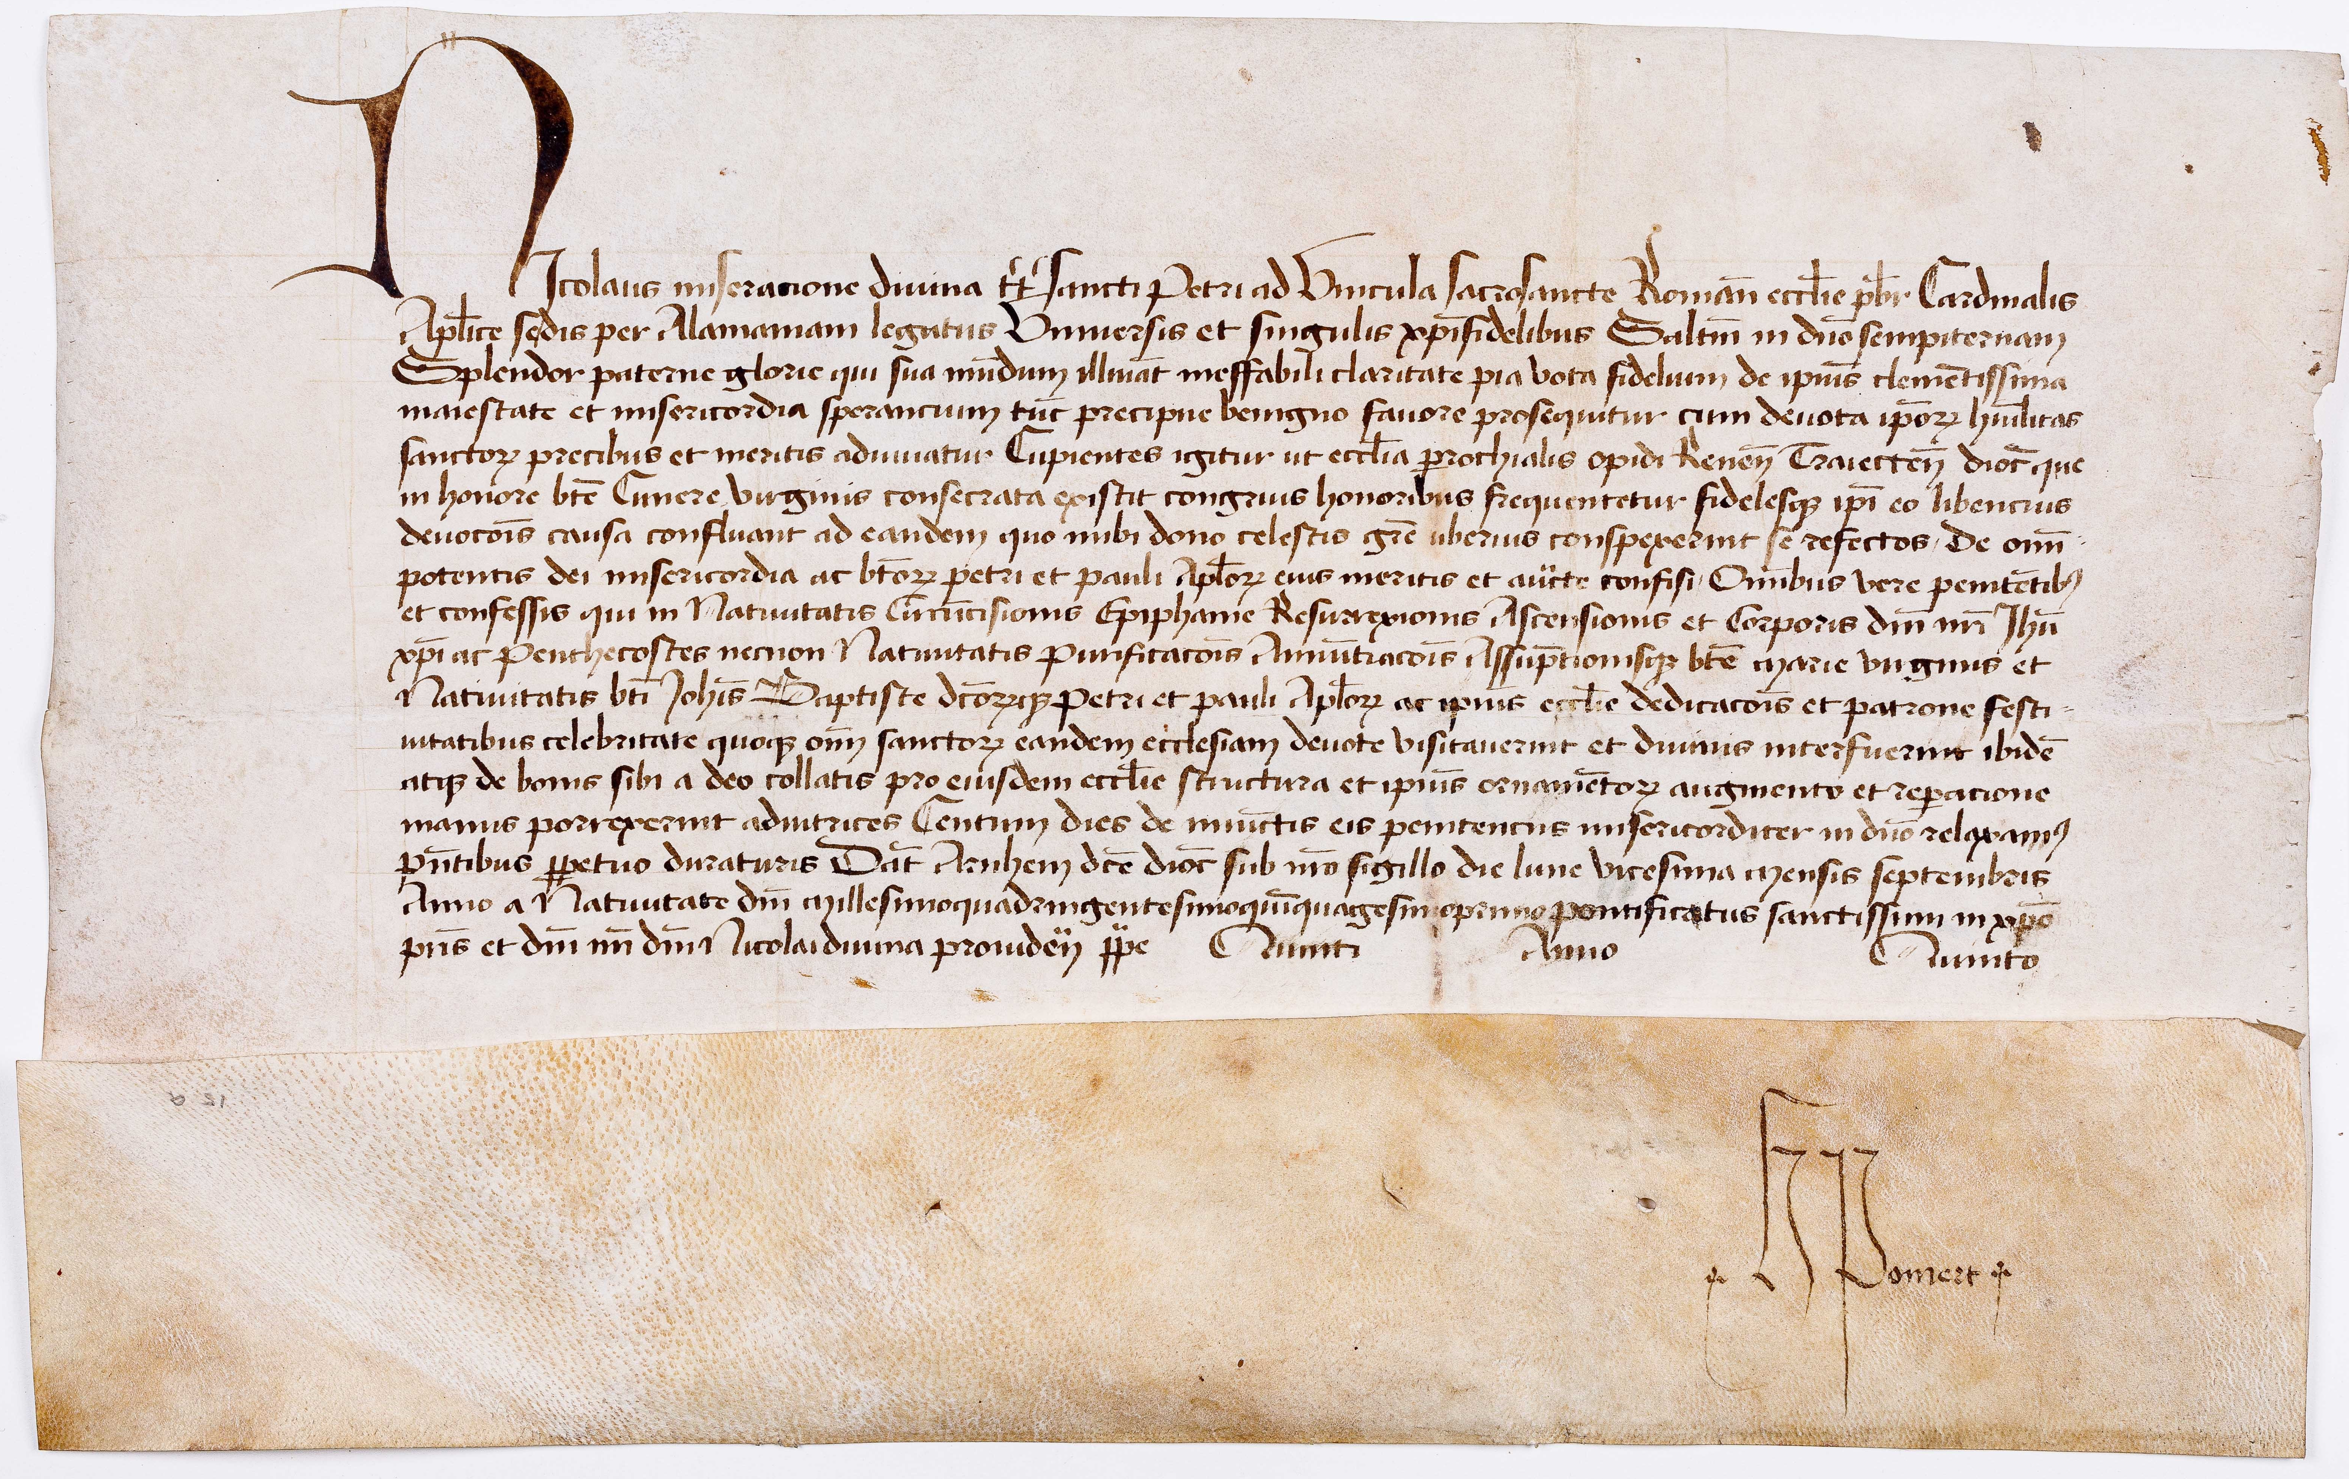 Nicolaus miseracione diuina tt sancti Petri ad Vincula sacrosancte Roman̄ eccl̄ie p̄br Cardinalis
Apl̄ice sedis per Alamaniam legatus Vniuersis et singulis xp̄ifidelibus Saltm̄ in dn̄o sempiternam
Splendor paterne glorie qui sua mūdum illumāt ineffabili claritate pia vota fidelium de ip̄ius clemētissima
maiestate et misericordia sperancium tūc precipue benigno fauore prosequitur cum deuota ip̄oꝝ huīlitas
sanctoꝝ precibus et meritis adiuuatur Cupientes igitur ut eccl̄ia parrochialis opidi Renen̄ Traiecten̄ dioc̄ que
in honore bt̄e Cunere virginis consecrata existit congruis honoribus frequentetur fidelesqꝫ ip̄i eo libencius
deuoc̄ois causa confluant ad eandem quo inibi dono celestis gr̄e uberius conspexerint se refectos, De om̄i
potentis dei misericordia ac bt̄oꝝ petri et pauli Apl̄oꝝ eius meritis et auct̄e confisi, Om̄ibus vere penitētibꝫ
et confessis qui in Natiuitatis Circūcisionis Epiphanie Resurrexionis Ascensionis et Corporis dn̄i nr̄i Jhū
xp̄i ac Penthecostes necnon Natiuitatis Purificac̄ois Annūtiac̄ois Assūptionisqꝫ bt̄e Marie virginis et
Natiuitatis bt̄i Joh̄is Baptiste dc̄oꝝqꝫ Petri et pauli Apl̄oꝝ ac ip̄ius eccl̄ie dedicac̄ois et patrone festi-
uitatibus celebritate quoqꝫ om̄i sanctoꝝ eandem ecclesiam deuote visitauerint et diuinis interfuerint ibidē
atqꝫ de bonis sibi a deo collatis pro eiusdem eccl̄ie structura et ip̄ius ornamētoꝝ augmento et reparacione
manus porrexerint adiutrices Centum dies de iniūctis eis penitenciis misericorditer in dn̄o relaxamꝰ
pn̄tibus ꝑpetuo duraturis Dat̄ Arnhem dc̄e dioc̄ sub nr̄o sigillo die lune vicesima Mensis septembris
Anno a Natiuitate dn̄i Millesimoquadringentesimoquīquagesimoprimo pontificatus sanctissimi in xp̄o
pr̄is et dn̄i nr̄i dn̄i Nicolai diuina prouiden̄ pp̄e Quinti Anno Quinto
H Pomert
15 a